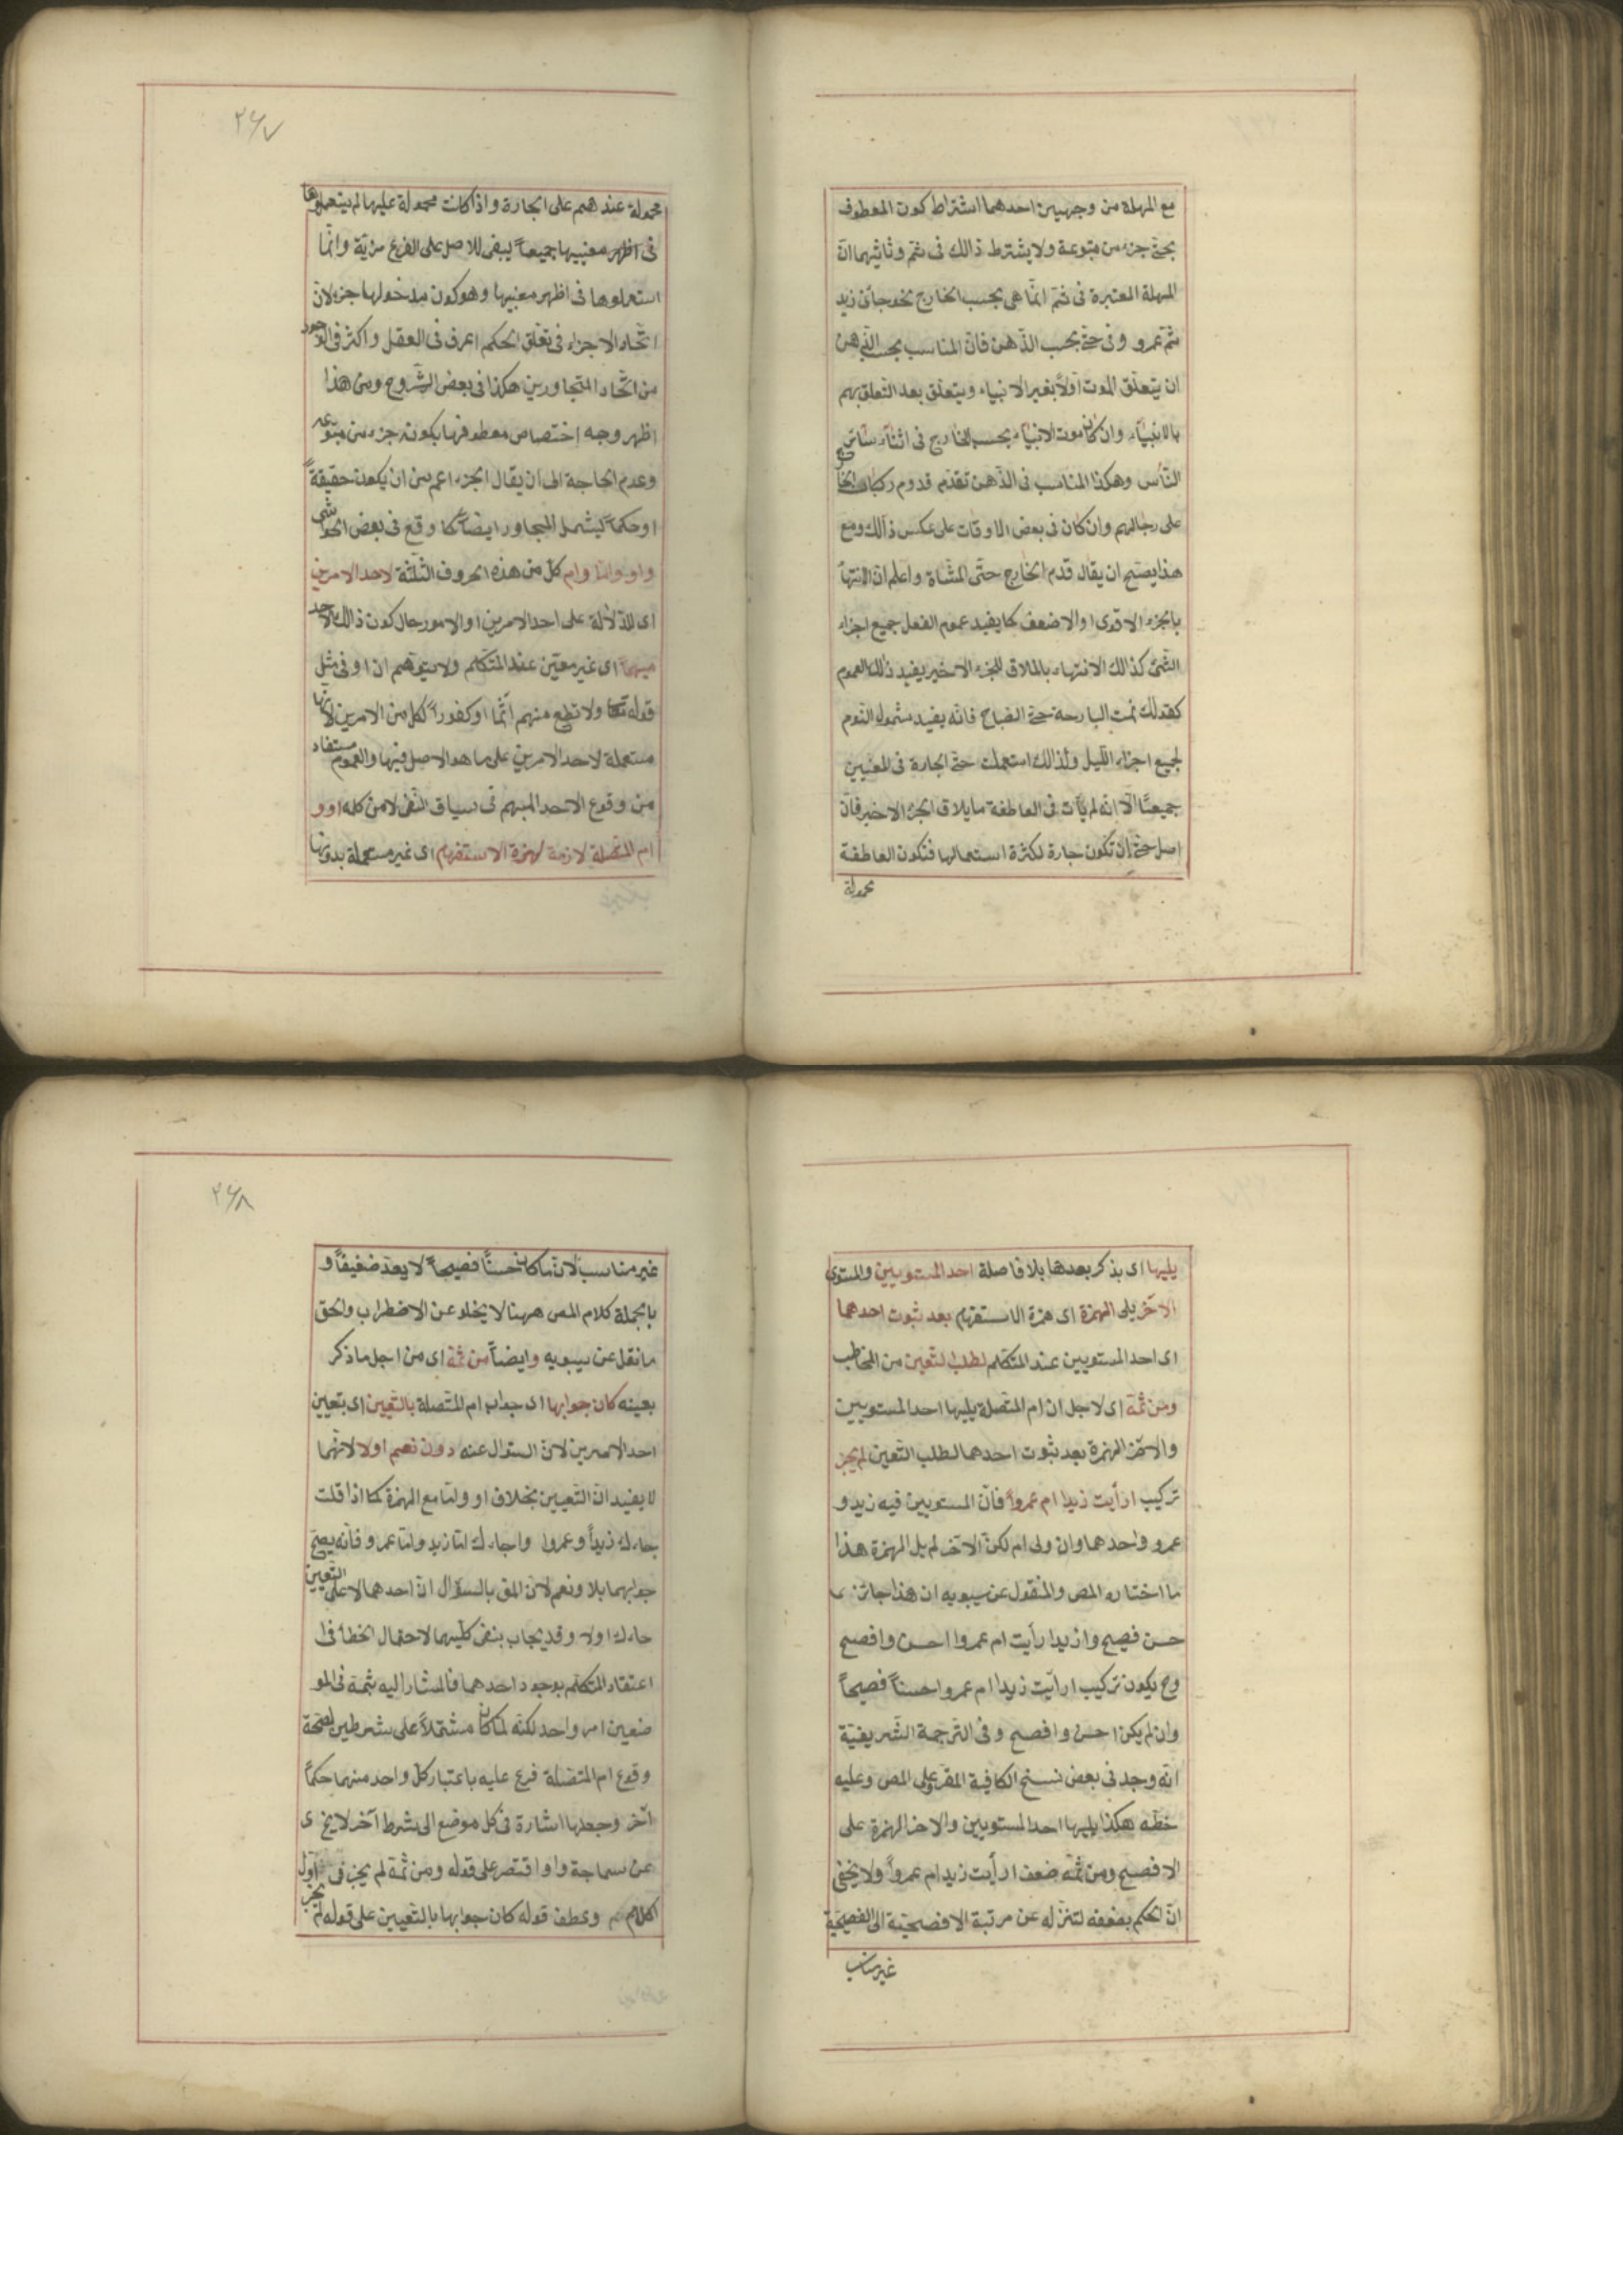 مع المهلة من وجهين احدهما اشتراط كون المعطوف
بحتى جزء من متبوعه ولا يشترط ذالك فى ثم وثانيهما انّ
المهلة المعتبرة فى ثمّ انّما هى بحسب الخارج نحو جائنى زيد
ثمّ عمرو وفى حتّى بحسب الذّهن فانّ المناسب بحسب الذّهن
ان يتعلّق الموت اوّلاً بغير الانبياء ويتعلّق بعد التعلّق بهم
بالانبياء وان كان موت الانبياء بحسب الخارج فى اثناء سائر
النّاس وهكذا المناسب فى الذّهن تقدّم قدوم ركبان الحاجّ
على رجالهم وان كان فى بعض الاوقات على عكس ذالك ومع
هذا يصحّ ان يقال قدم الحاج حتّى المشاة واعلم ان الانتهاء
بالجزء الاقوى او الاضعف كما يفيد عموم الفعل جميع اجزاء
الشّئ كذالك الانتهاء بالملاقى للجزء الاخير يفيد ذالك العموم
كقولك نمت البارحة حتى الصّباح فانّه يفيد شمول النّوم
لجميع اجزاء اللّيل ولذالك استعملت حتّى الجارة فى المعنيين
جميعًا الّا انّه لم يأت فى العاطفة ما يلاقى الجزء الاخير فانّ
اصل حتى ان تكون جارة لكثرة استعمالها فتكون العاطفة
محمولة
٢٦٧
محمولة عندهم على الجارة واذا كانت محمولة عليها لم يستعملوها
فى اظهر معنييها جميعاً ليبقى للاصل على الفرع مزيّة وانّما
استعملوها فى اظهر معنييها وهو كون مدخولها جزء لانّ
اتّحاد الاجزاء فى تعلّق الحكم اعرف فى العقل واكثر فى الوجود
من اتّحاد المتجاورين هكذا فى بعض الشّروح ومن هذا
اظهر وجه اختصاص معطوفها بكونه جزء من متبوعه
وعدم الحاجة الى ان يقال الجزء اعم من ان يكون حقيقةً
او حكماً ليشمل المجاور ايضاً كما وقع فى بعض الحواشى
واو وامّا وام كلّ من هذه الحروف الثّلثة لاحد الامرين
اى للدّلالة على احد الامرين او الامور حال كون ذالك الاحد
مبهماً اى غير معيّن عند المتكلّم ولا يتوهّم ان او فى مثل
قوله تعا ولا تطع منهم آثمًا او كفوراً لكل من الامرين لانّها
مستعملة لاحد الامرين على ما هو الاصل فيها والعموم مستفاد
من وقوع الاحد المبهم فى سياق النّفى لا من كلمة او و
ام المتّصلة لازمة لهمزة الاستفهام اى غير مستعملة بدونها
يليها اى يذكر بعدها بلا فاصلة احد المستويين والمستوى
الآخر يلى الهمزة اى همزة الاستفهام بعد ثبوت احدهما
اى احد المستويين عند المتكلّم لطلب التّعيين من المخاطب
ومن ثمّة اى لاجل ان ام المتّصلة يليها احد المستويين
والآخر الهمزة بعد ثبوت احدهما لطلب التّعيين لم يجز
تركيب ارأيت زيدا ام عمرواً فانّ المستويين فيه زيد و
عمرو واحدهما وان ولى ام لكنّ الآخر لم يل الهمزة هذا
ما اختاره المص والمنقول عن سيبويه ان هذا جائز
حسن فصيح وازيدا رأيت ام عمروا احسن وافصح
وح يكون تركيب ارأيت زيدا ام عمروا حسناً فصيحاً
وان لم يكن احسن وافصح وفى التّرجمة الشّريفيّة
انّه وجد فى بعض نسخ الكافية المقروّ على المص وعليه
خطّه هكذا يليها احد المستويين والاخر الهمزة على
الافصح ومن ثمّه ضعف ارأيت زيدا ام عمرواً ولا يخفى
انّ الحكم بضعفه لتنزله عن مرتبة الافصحيّة الى الفصيحيّة
غير مناسب
٢٦٨
غير مناسب لانّ ما كان حسنًا فصيحاً لا يعدّ ضعيفاً و
بالجملة كلام المص ههنا لا يخلو عن الاضطراب والحق
ما نقل عن سيبويه وايضاً من ثمّة اى من اجل ما ذكر
بعينه كان جوابها اى جواب ام المتّصلة بالتّعيين اى بتعيين
احد الامرين لانّ السّؤال عنه دون نعم اولا لانّهما
لا يفيدان التّعيين بخلاف او وامّا مع الهمزة كما اذا قلت
جاءك زيداً وعمروا واجاءك امّا زيد وامّا عمرو فانّه يصحّ
جوابهما بلا ونعم لانّ المق بالسؤال انّ احدهما لا على التّعيين
جاءك اولا وقد يجاب بنفى كليهما لاحتمال الخطأ فى
اعتقاد المتكلّم بوجود احدهما فالمشار اليه بثمّة فى المو
ضعين امر واحد لكنّه لمّا كان مشتملاً على شرطين لصحّة
وقوع ام المتّصلة فرع عليه باعتبار كلّ واحد منهما حكماً
آخر وجعلها اشارة فى كل موضع الى شرط آخر لا يخ ى
عن سماجة ولو اقتصر على قوله ومن ثمّة لم يجز فى اوّل
الكلام وعطف قوله كان جوابها بالتّعيين على قوله لم يجز